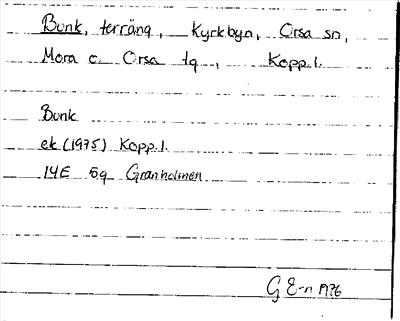 Bunk, terräng, Kyrkbyn, Orsa sn,
Mora o. Orsa tg, Kopp.l.
Bunk
ek (1975) Kopp.l.
14E 5g Granholmen
G E-n 1976